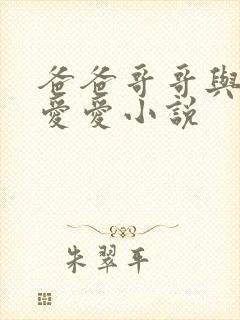 爸爸哥哥與
愛愛小說
朱翠平